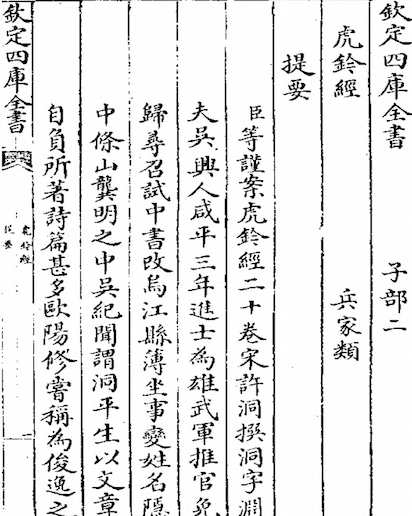 欽定四庫全書 子部二
虎鈐經 兵家類
提要
臣等謹案虎鈐經二十卷宋許洞撰洞字淵
夫吳興人咸平三年進士為雄武軍推官免
歸尋召試中書改烏江縣簿坐事變姓名隱
中條山龔明之中吳紀聞謂洞平生以文章
自負所著詩篇甚多歐陽修嘗稱為俊逸之
欽定四庫全書
虎鈐經
提要
一